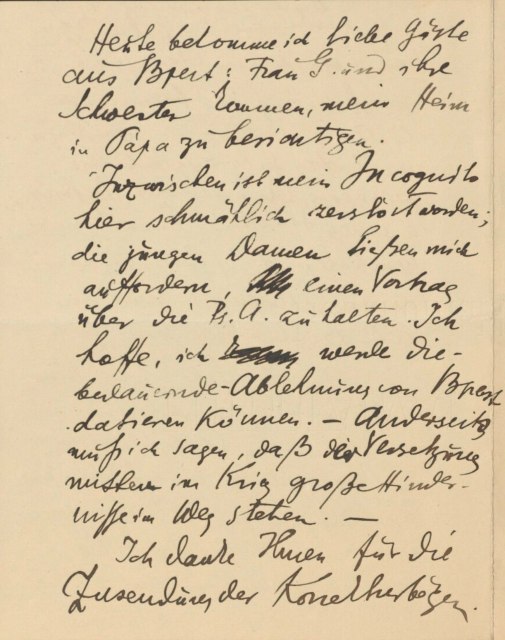 Heute bekomme ich liebe Gäste
aus Bpest: Frau G. und ihre
Schwester kommen, mein Heim
in Pápa zu besichtigen.
Inzwischen ist mein Incognito
hier schmählich zerstört worden;
die jungen Damen ließen mich
auffordern, einen Vortrag
über die Ps. A. zu halten. Ich
hoffe, ich werde die
bedauernde Ablehnung von Bpest
datieren können. — Anderseits
muß ich sagen, daß der Versetzung
mitten im Krieg große Hinder-
nisse im Weg stehen. —
Ich danke Ihnen für die
Zusendung der Korrekturbögen.